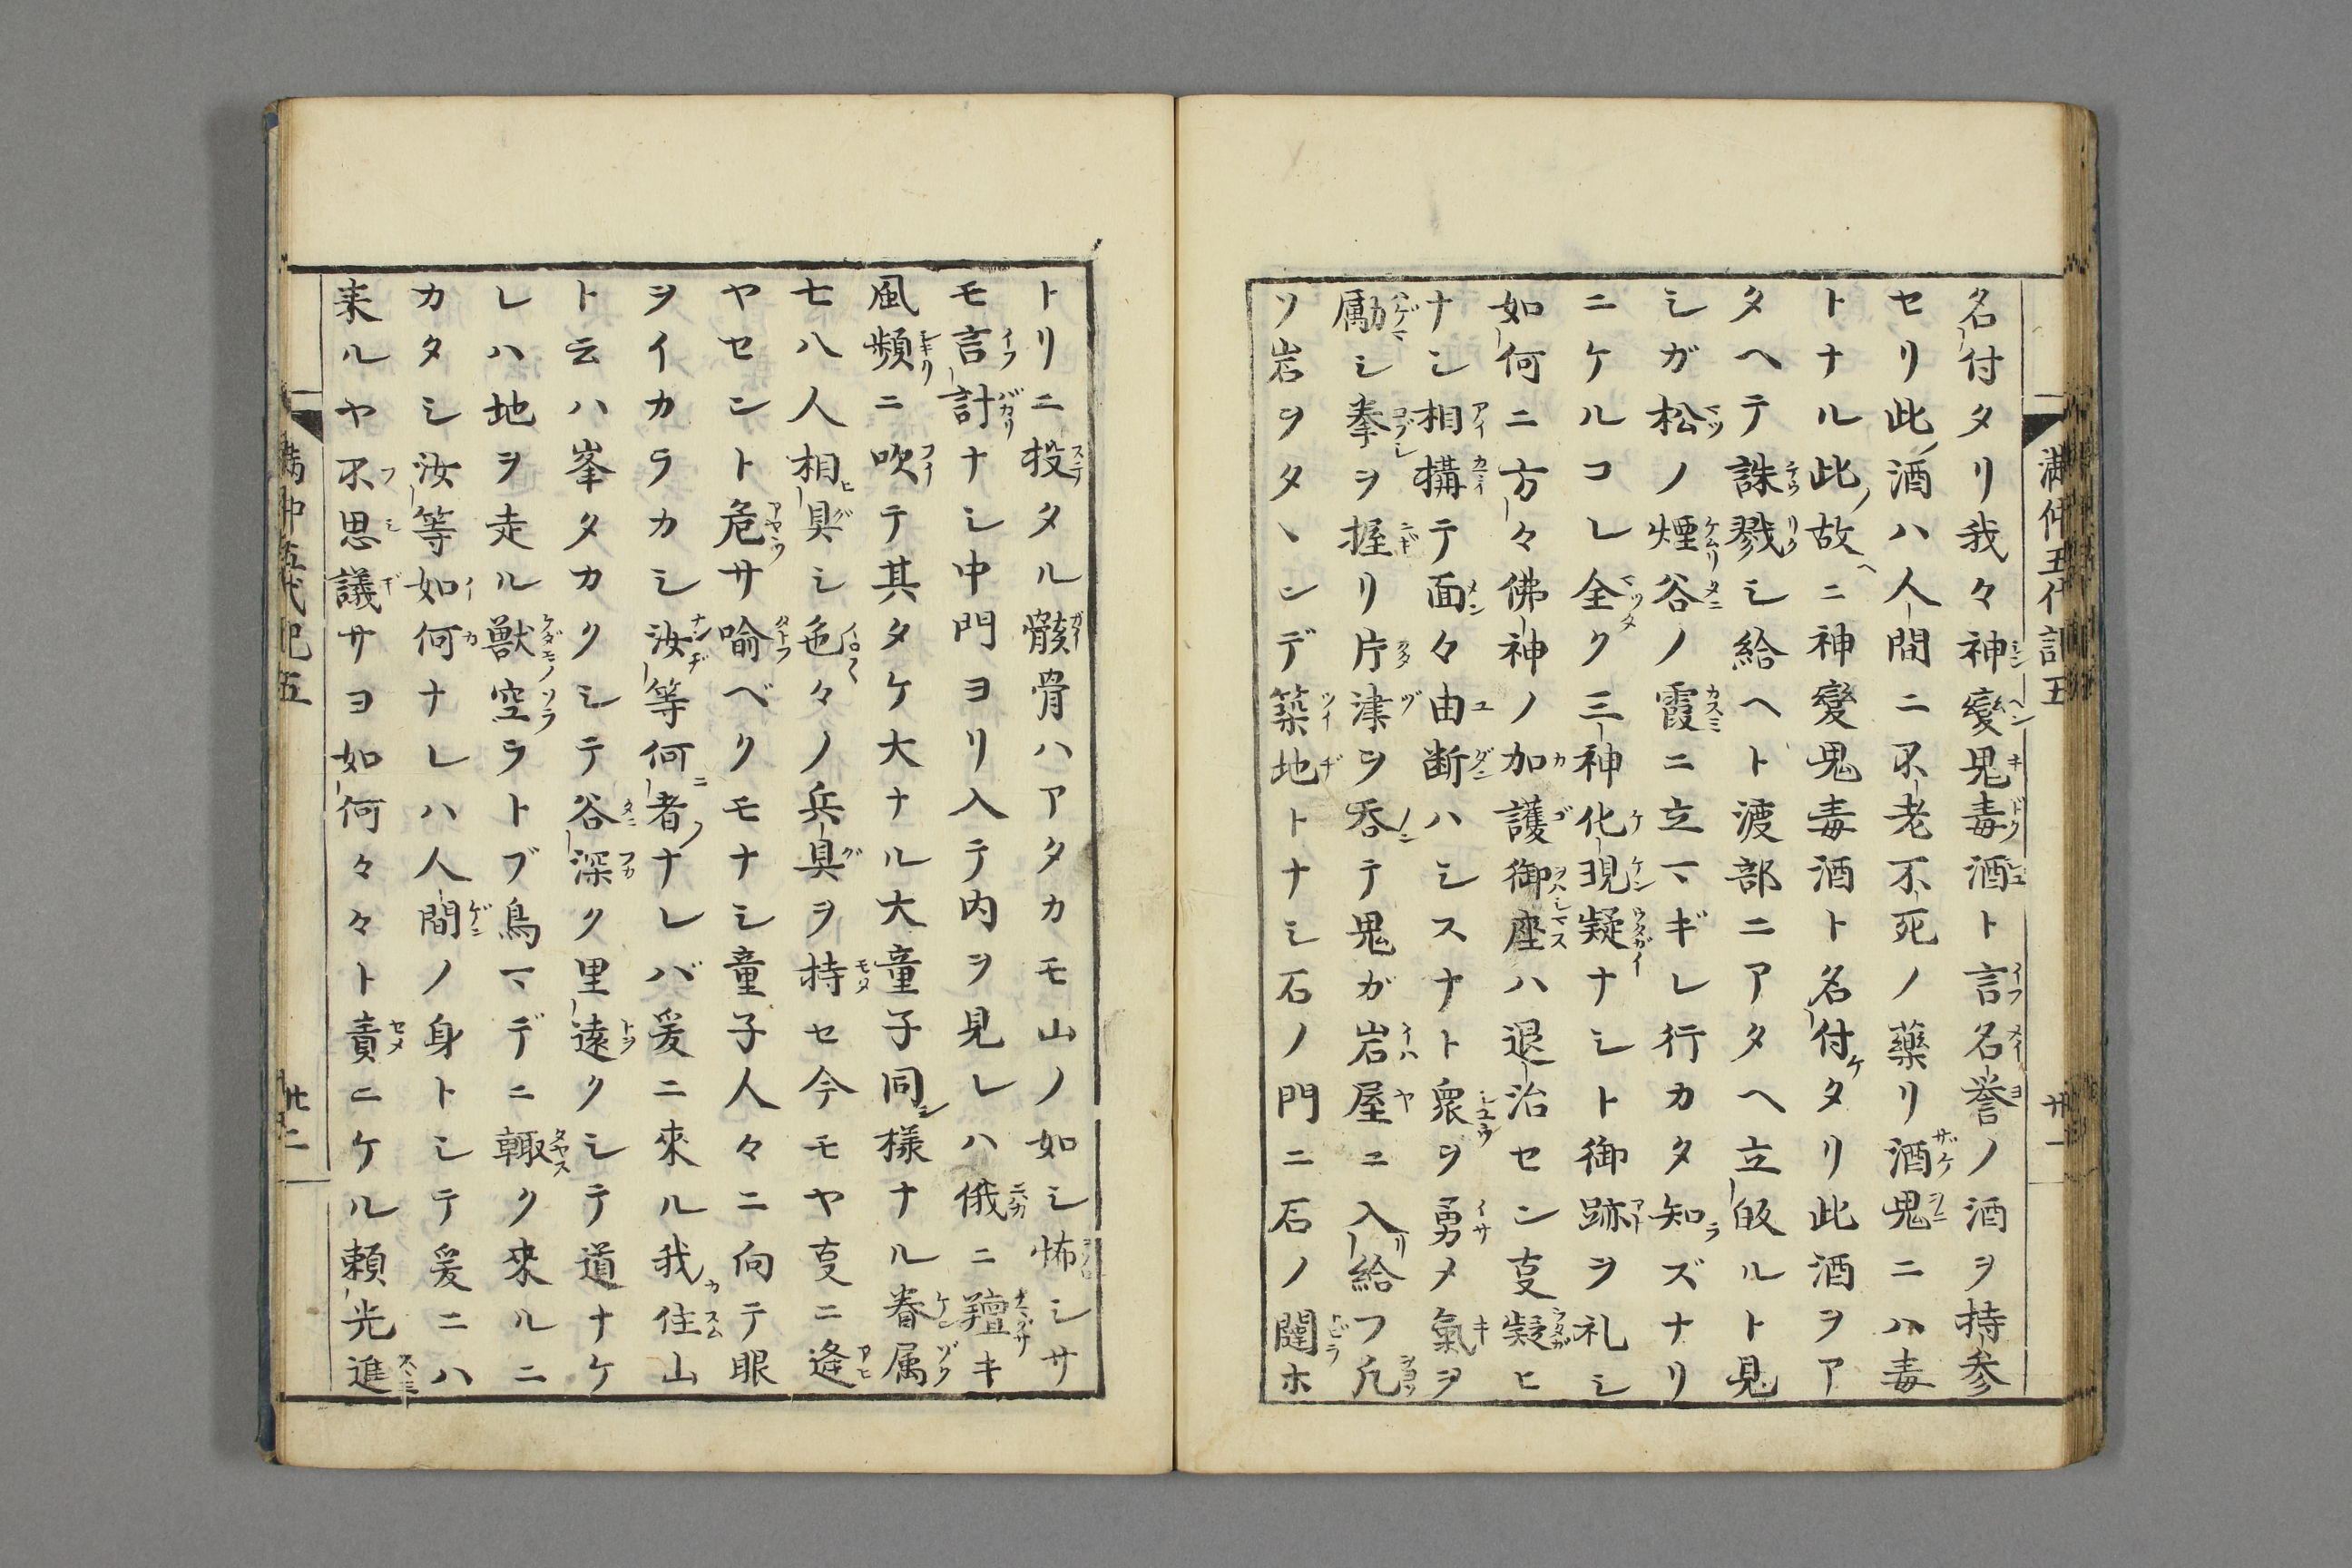 満仲五代記五 廿一
名付タリ我々神變鬼毒酒ト言名誉ノ酒ヲ持参
セリ此酒ハ人間ニ不老不死ノ藥リ酒鬼ニハ毒
トナル此故ニ神變鬼毒酒ト名付タリ此酒ヲア
タヘテ誅戮シ給ヘト渡部ニアタヘ立皈ルト見
シガ松ノ煙谷ノ霞ニ立マギレ行カタ知ズナリ
ニケルコレ全ク三神化現疑ナシト御跡ヲ礼シ
如何ニ方々佛神ノ加護御座ハ退治セン叓疑ヒ
ナシ相構テ面々由断ハシスナト衆ヲ勇メ氣ヲ
勵シ拳ヲ握リ片津ヲ呑テ鬼ガ岩屋ニ入給フ凡
ソ岩ヲタヽンデ築地トナシ石ノ門ニ石ノ闥ホ
トリニ投タル骸骨ハアタカモ山ノ如シ怖シサ
モ言計ナシ中門ヨリ入テ内ヲ見レハ俄ニ羶キ
風頻ニ吹テ其タケ大ナル大童子同様ナル眷属
七八人相具シ色々ノ兵具ヲ持セ今モヤ叓ニ逄
ヤセント危サ喻ベクモナシ童子人々ニ向テ眼
ヲイカラカシ汝等何者ナレバ爰ニ來ル我住山
ト云ハ峯タカクシテ谷深ク里遠クシテ道ナケ
レハ地ヲ走ル獣空ラトブ鳥マデニ輙ク來ルニ
カタシ汝等如何ナレハ人間ノ身トシテ爰ニハ
来ルヤ不思議サヨ如何々々ト責ニケル頼光進
満仲五代記五 廿二